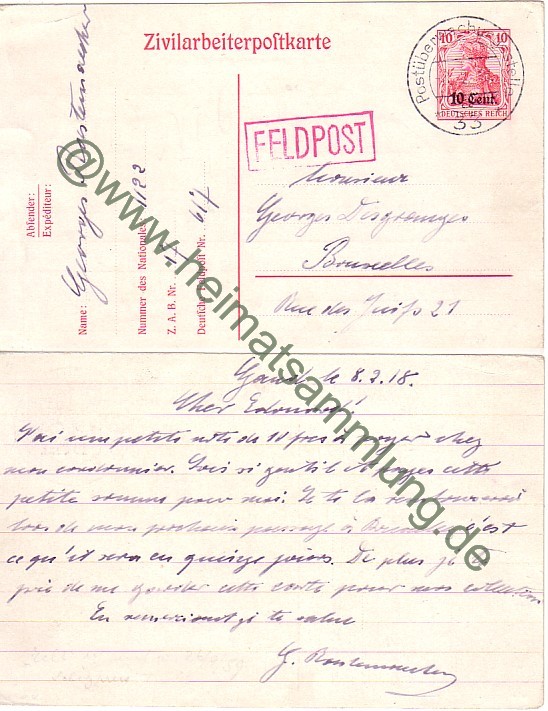 Zivilarbeiterpostkarte
10 10
10 Cent.
DEUTSCHES REICH
Postüberwachungsstelle
33
FELDPOST
Absender:
Expéditeur:
Name: Georges
Nummer des Nationale 1122
Z. A. B. Nr.
Deutsche Feldpost Nr. 617
Monsieur
Georges Desgranges
Bruxelles
Rue des Juifs 21
@www.heimatsammlung.de
Gand le 8.2.18.
Cher Edouard!
J'ai une petite note de 10 frcs à payer chez
mon cordonnier. Sois si gentil et payes cette
petite somme pour moi. Je te la rembourserai
lors de mon prochain passage à Bruxelles c'est
ce qu'il sera en quinze jours. De plus je te
prie de me garder cette carte pour mes collection
En remerciant je te salue
G.